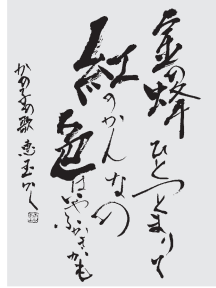 金の蜂ひとつとまりて
紅のかんなの
色はいやふかきかも
かの子の歌 恵玉かく